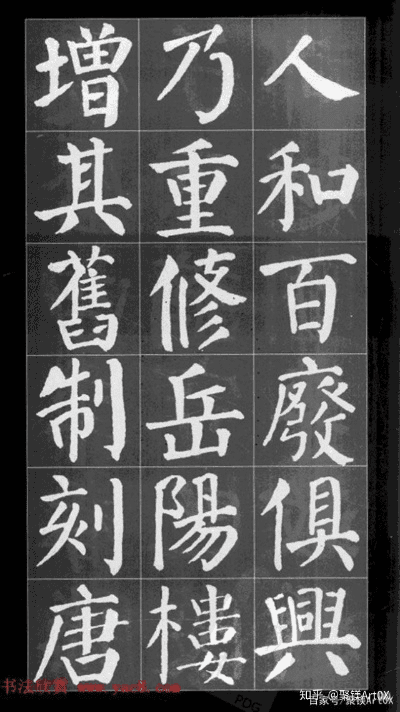 人和百廢俱興
乃重修岳陽樓
增其舊制刻唐
书法欣赏
知乎 @聚镁ArtOX
百家号/聚镁ArtOX
PDG